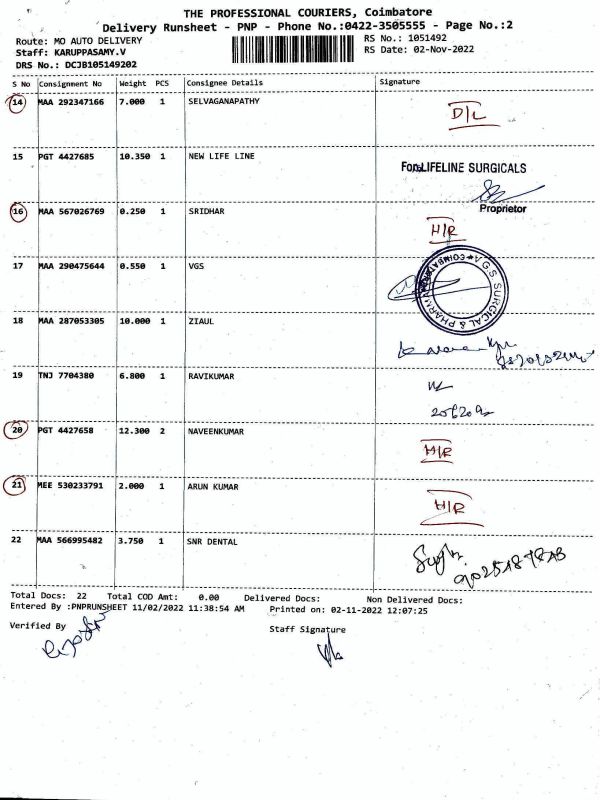 THE PROFESSIONAL COURIERS, Coimbatore
Delivery Runsheet - PNP - Phone No.:0422-3505555 - Page No.:2
Route: MO AUTO DELIVERY RS No.: 1051492
Staff: KARUPPASAMY.V RS Date: 02-Nov-2022
DRS No.: DCJB105149202
S No Consignment No Weight PCS Consignee Details Signature
14 MAA 292347166 7.000 1 SELVAGANAPATHY
D/L
15 PGT 4427685 10.350 1 NEW LIFE LINE
For LIFELINE SURGICALS
Proprietor
16 MAA 567026769 0.250 1 SRIDHAR
H/R
17 MAA 290475644 0.550 1 VGS
V.G.S. SURGICAL & PHARMA COIMBATORE
18 MAA 287053305 10.000 1 ZIAUL
19 TNJ 7704380 6.800 1 RAVIKUMAR
20 PGT 4427658 12.300 2 NAVEENKUMAR
H/R
21 MEE 530233791 2.000 1 ARUN KUMAR
H/R
22 MAA 566995482 3.750 1 SNR DENTAL
Total Docs: 22 Total COD Amt: 0.00 Delivered Docs: Non Delivered Docs:
Entered By :PNPRUNSHEET 11/02/2022 11:38:54 AM Printed on: 02-11-2022 12:07:25
Verified By Staff Signature